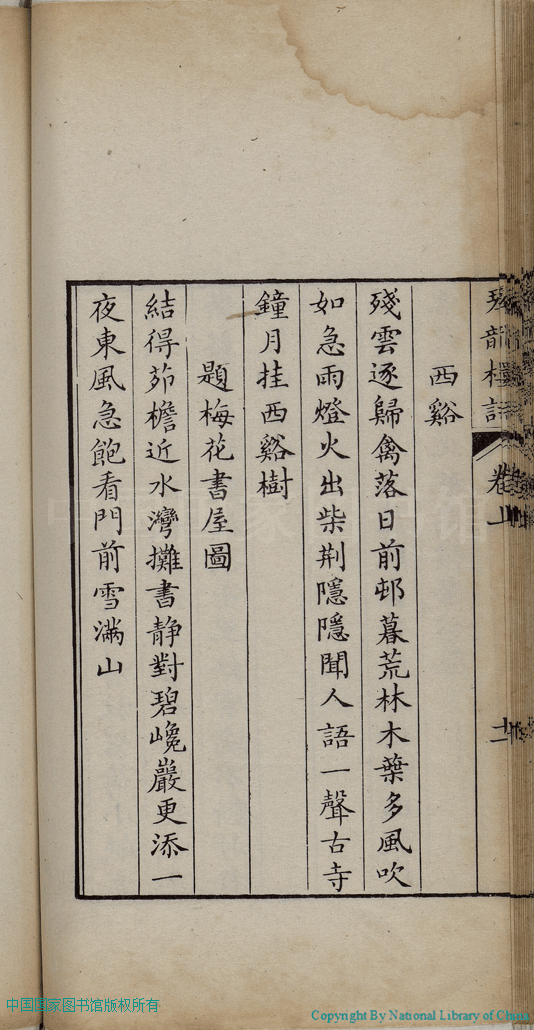 西谿
殘雲逐歸禽落日前邨暮荒林木葉多風吹
如急雨燈火出柴荆隱隱聞人語一聲古寺
鐘月挂西谿樹
題梅花書屋圖
結得茆檐近水灣攤書静對碧巉巖更添一
夜東風急飽看門前雪滿山
卷上
中国国家图书馆版权所有
Copyright By National Library of China